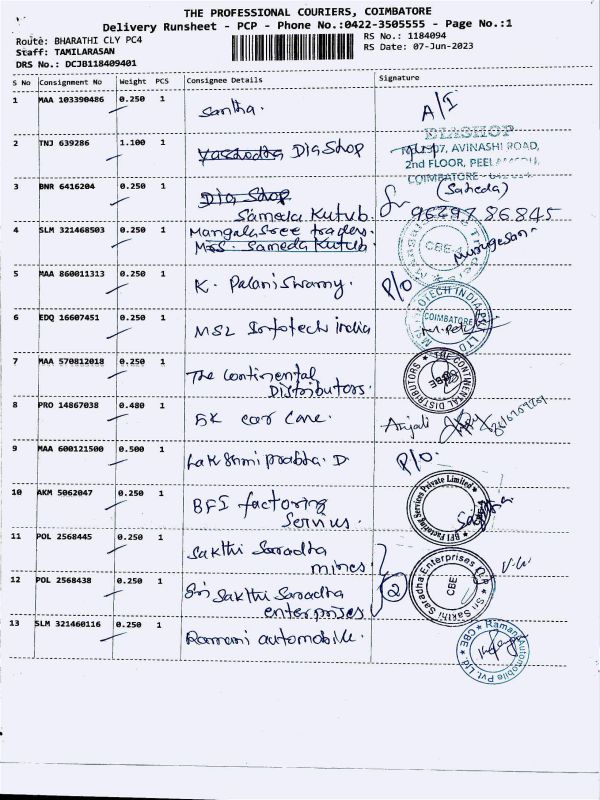 THE PROFESSIONAL COURIERS, COIMBATORE
Delivery Runsheet - PCP - Phone No.:0422-3505555 - Page No.:1
Route: BHARATHI CLY PC4 RS No.: 1184094
Staff: TAMILARASAN RS Date: 07-Jun-2023
DRS No.: DCJB118409401
S No Consignment No Weight PCS Consignee Details Signature
1 MAA 103390486 0.250 1 Santha. A/I
2 TNJ 639286 1.100 1 Yaschodha Dia Shop
DIASHOP
AVINASHI ROAD,
2nd FLOOR,
COIMBATORE
3 BNR 6416204 0.250 1 Dia Shop (Saheda)
Sameda Kutub. 96297 86845
4 SLM 321468503 0.250 1 Mangala Sree traders. CBE Murugesan
Mrs. Sameda Kutub
5 MAA 860011313 0.250 1 K. Palani Swamy. P/O
6 EDQ 16607451 0.250 1 MSL Infotech india COIMBATORE
7 MAA 570812018 0.250 1 The Continental
Distributors. THE CONTINENTAL DISTRIBUTORS
8 PRO 14867038 0.480 1 SK car care. Anjali
9 MAA 600121500 0.500 1 Lakshmi prabha. D P/O.
10 AKM 5062047 0.250 1 BFI factoring
Servius. BFI Factoring Services Private Limited
11 POL 2568445 0.250 1 Sakthi Saradha
mines
12 POL 2568438 0.250 1 Sri Sakthi Saradha 2 Sri Sakthi Saradha Enterprises CBE
enterprises
13 SLM 321460116 0.250 1 Ramani automobile. Ramani Automobile Pvt. Ltd CBE